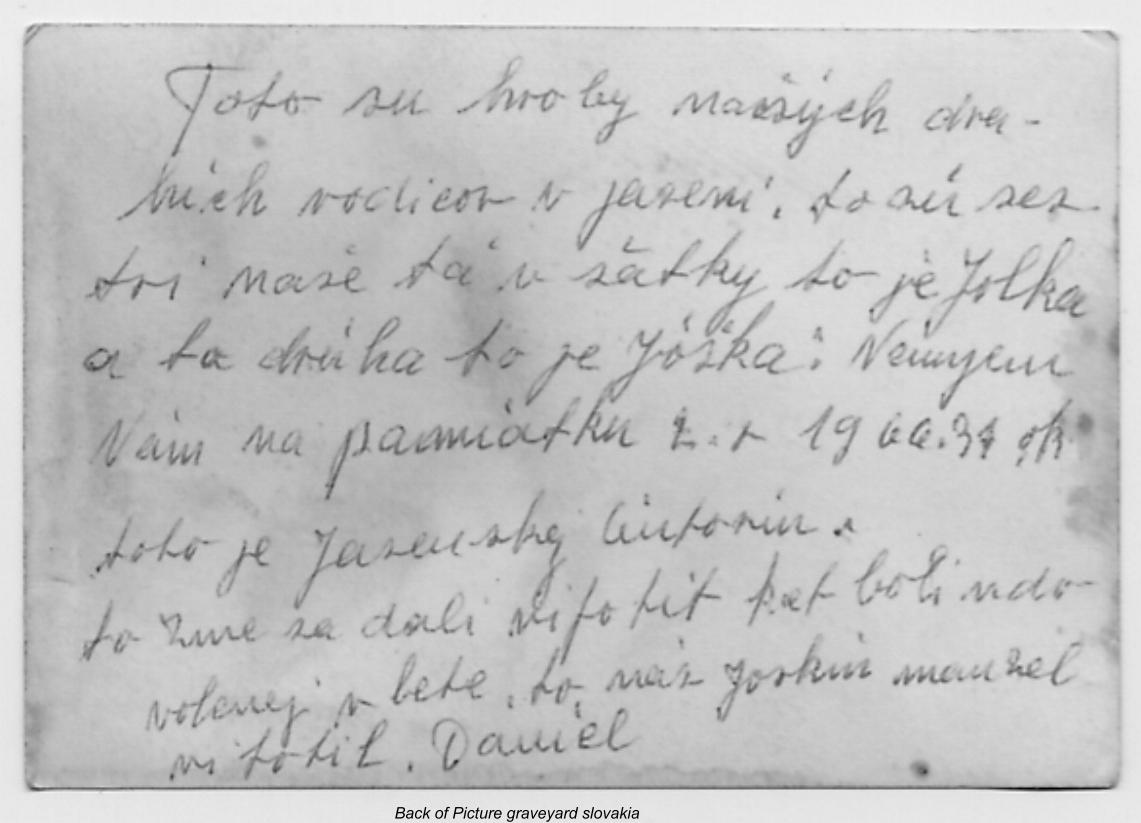 Toto su hroby naších dra-
hích rodicov v jaseni, to sú ses
tri naše tá v šátky to je Jolka
a ta drúha to je Jóška:
Vám na pamiatku z. r 19
toto je Jasenskej Cintorin.
to zme sa dali vifotit ket boli na do
volenej v lete, to nás Joskin manžel
vifotil. Daniel
Back of Picture graveyard slovakia